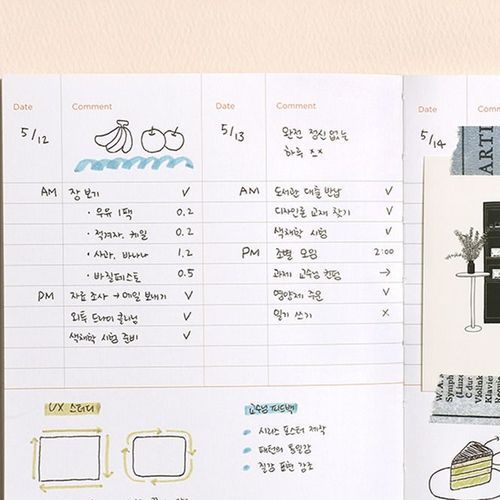 Date Comment
5/12
AM 장보기 ✓
· 우유 1팩 0.2
· 적겨자, 케일 0.2
· 사과, 바나나 1.2
· 바질페스토 0.5
PM 자료 조사 → 메일 보내기 ✓
외투 드라이클리닝 ✓
색채학 시험 준비 ✓
Date Comment
5/13
완전 정신없는
하루 xx
AM 도서관 대출 반납 ✓
디자인론 교재 찾기 ✓
색채학 시험 ✓
PM 조별 모임 2:00
과제 교수님 컨펌 →
영양제 주문 ✓
일기 쓰기 x
Date Comm
5/14
ARTI
W. A.
Symph
(Linz
C dur
Violin
Klavier
Requie
UX 스터디
교수님 피드백
시리즈 포스터 제작
패턴의 통일감
질감 표현 강조